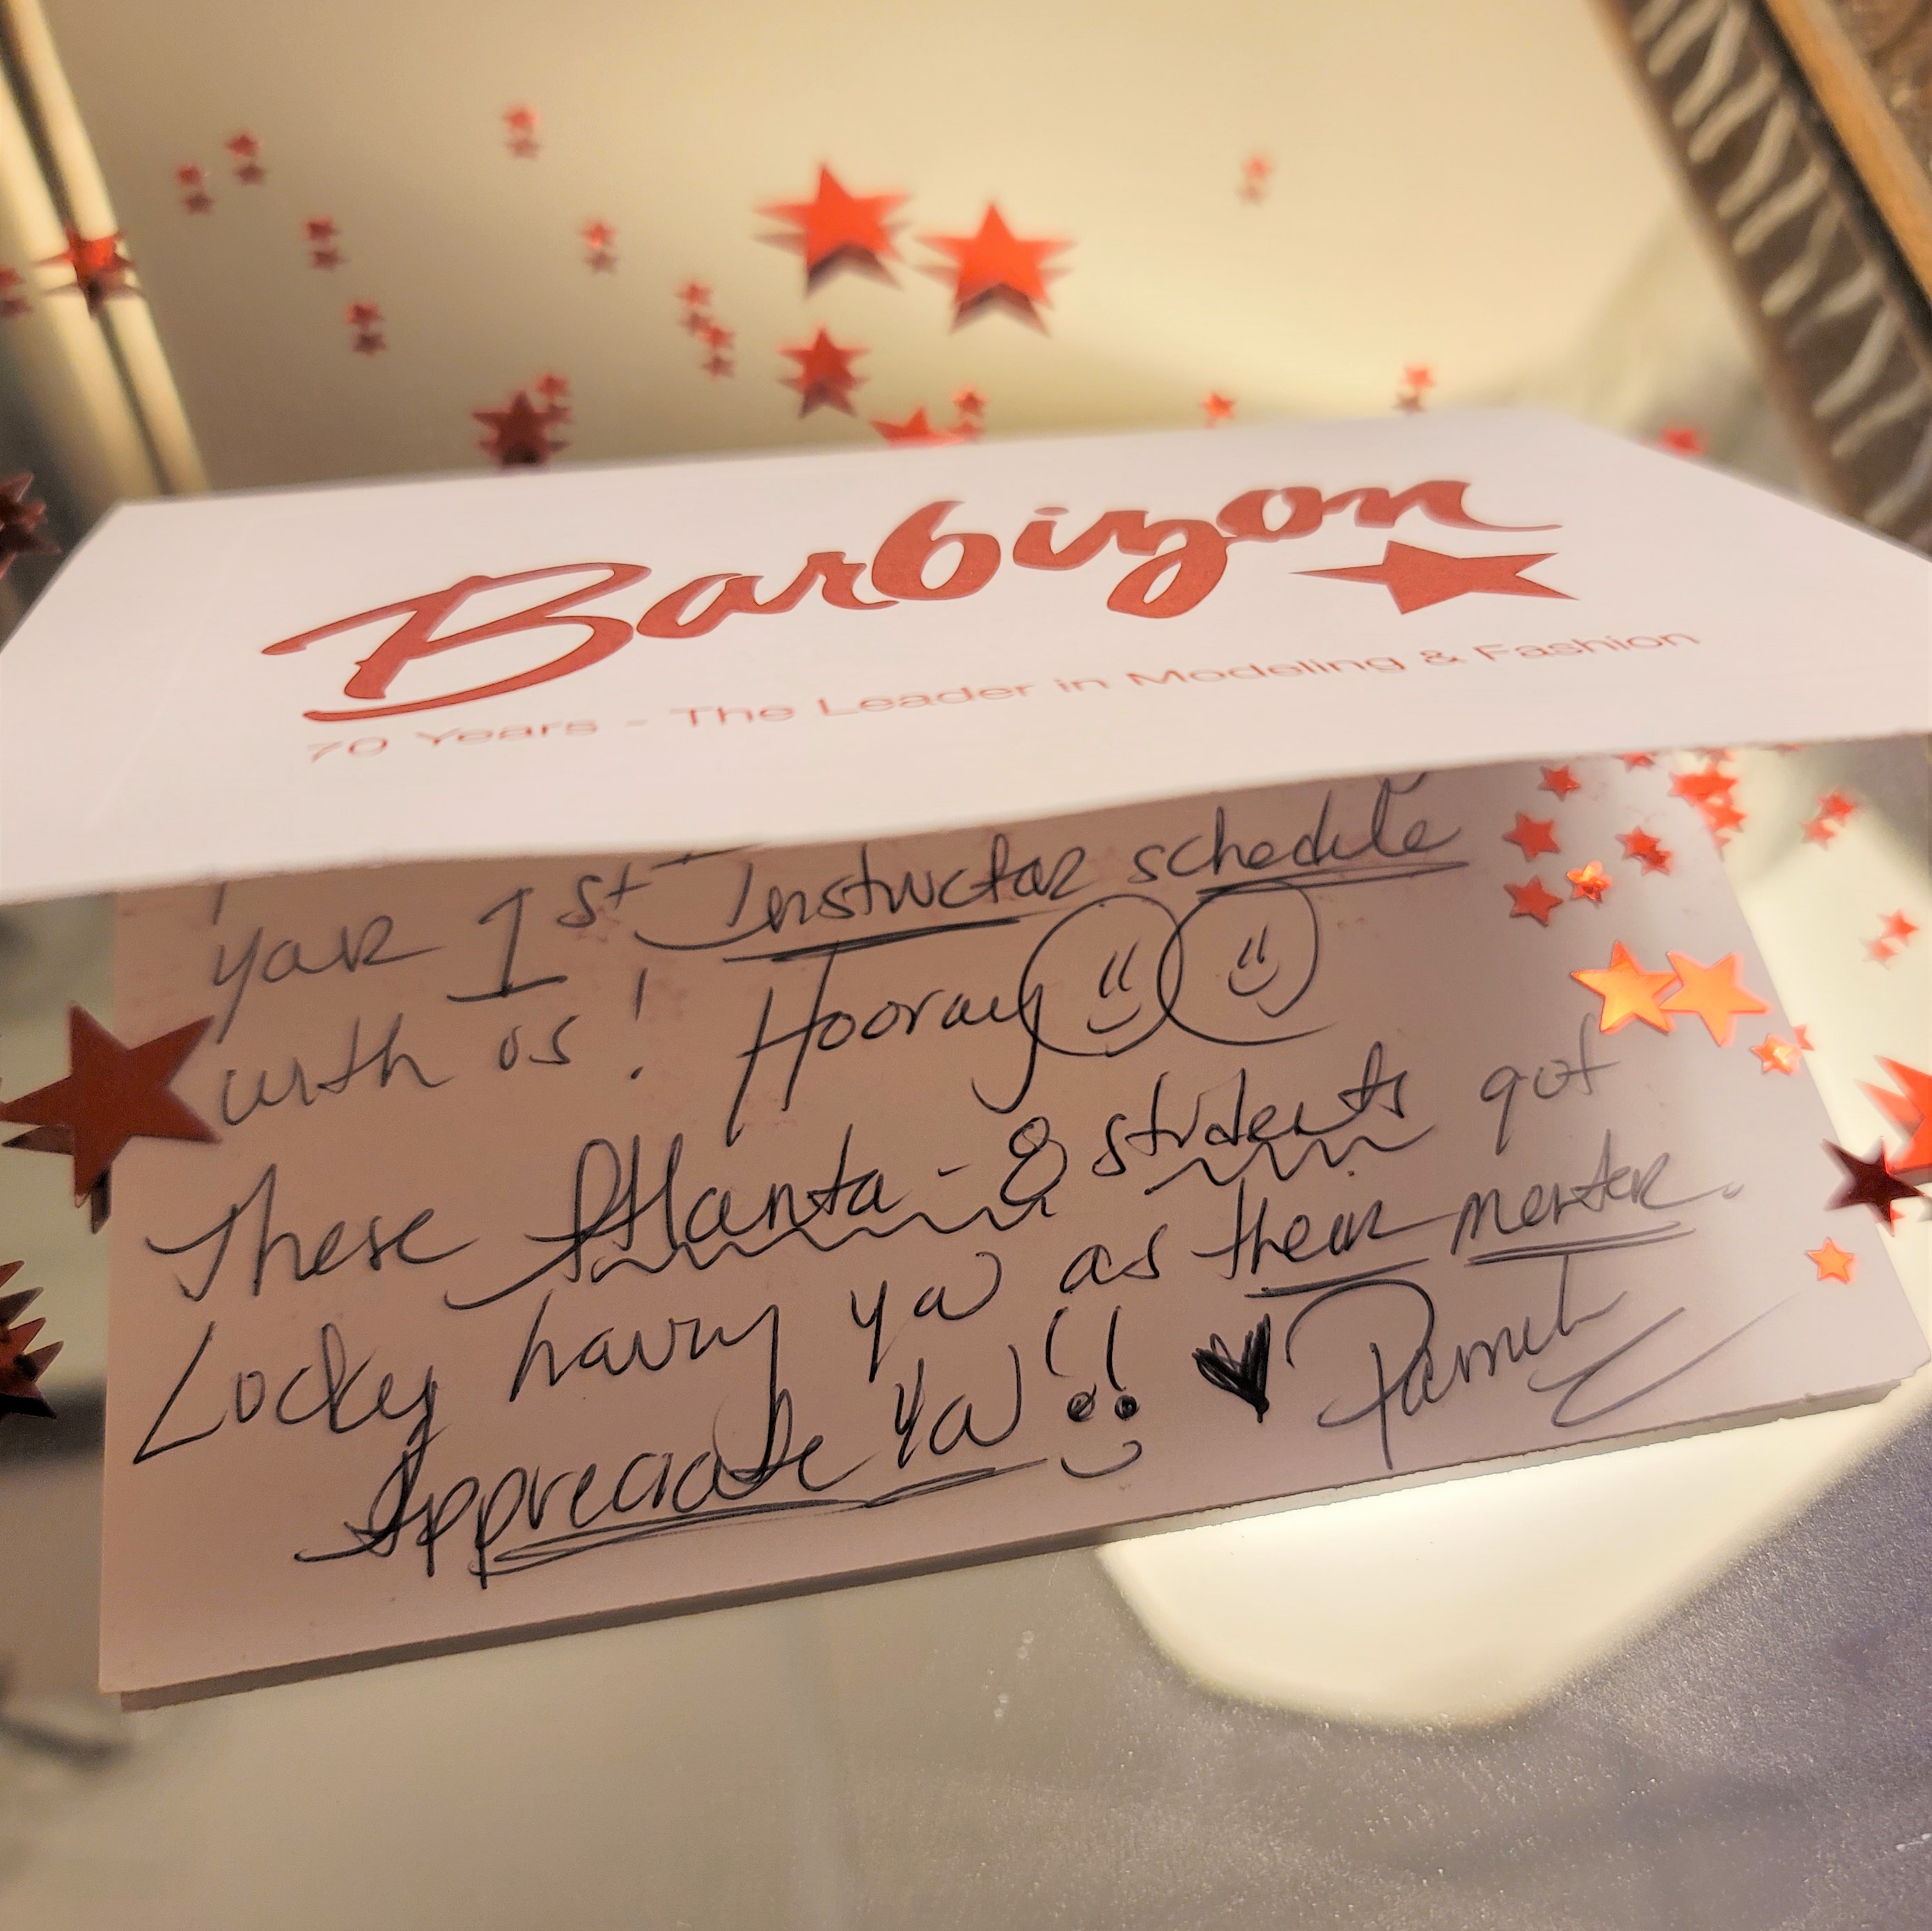 Barbizon
70 Years - The Leader in Modeling & Fashion
your 1st Instructor schedule
with us! Hooray
These Atlanta-8 students got
Lucky having ya as their mentor.
Appreciate Ya!!